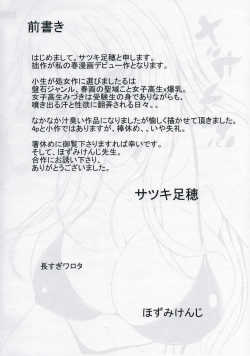 前書き
はじめまして。サツキ足穂と申します。
拙作が私の春漫画デビュー作となります。
小生が処女作に選びましたるは
盤石ジャンル、春画の聖域こと女子高生x爆乳。
女子高生みづきは受験生の身でありながらも、
噴き出る汗と性欲に翻弄される日々、。
なかなか汁臭い作品になりましたが愉しく描かせて頂きました。
4pと小作ではありますが、棒休め、、いや失礼。
箸休めに御覧下さりますれば幸いです。
そして、ほずみけんじ先生。
合作にお誘い下さり、
ありがとうございました。
サツキ足穂
長すぎワロタ
ほずみけんじ